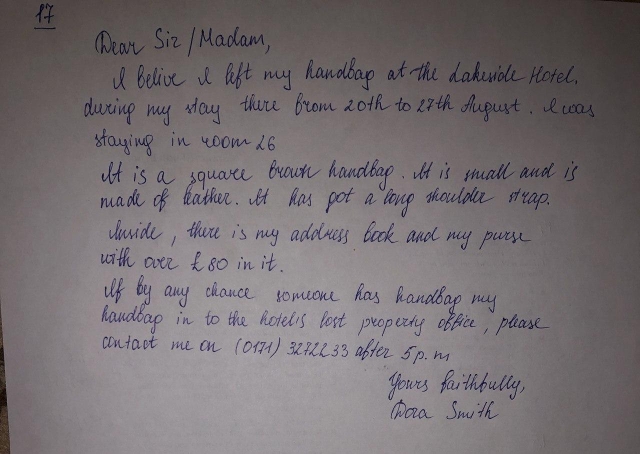 17
Dear Sir/Madam,
I belive I left my handbag at the Lakeside Hotel.
during my stay there from 20th to 27th August. I was
staying in room 26
It is a square brown handbag. It is small and is
made of leather. It has got a long shoulder strap.
Inside, there is my address book and my purse
with over £80 in it.
If by any chance someone has handbag my
handbag in to the hotel's lost property office, please
contact me on (0171) 3272233 after 5 p.m
Yours faithfully,
Dora Smith